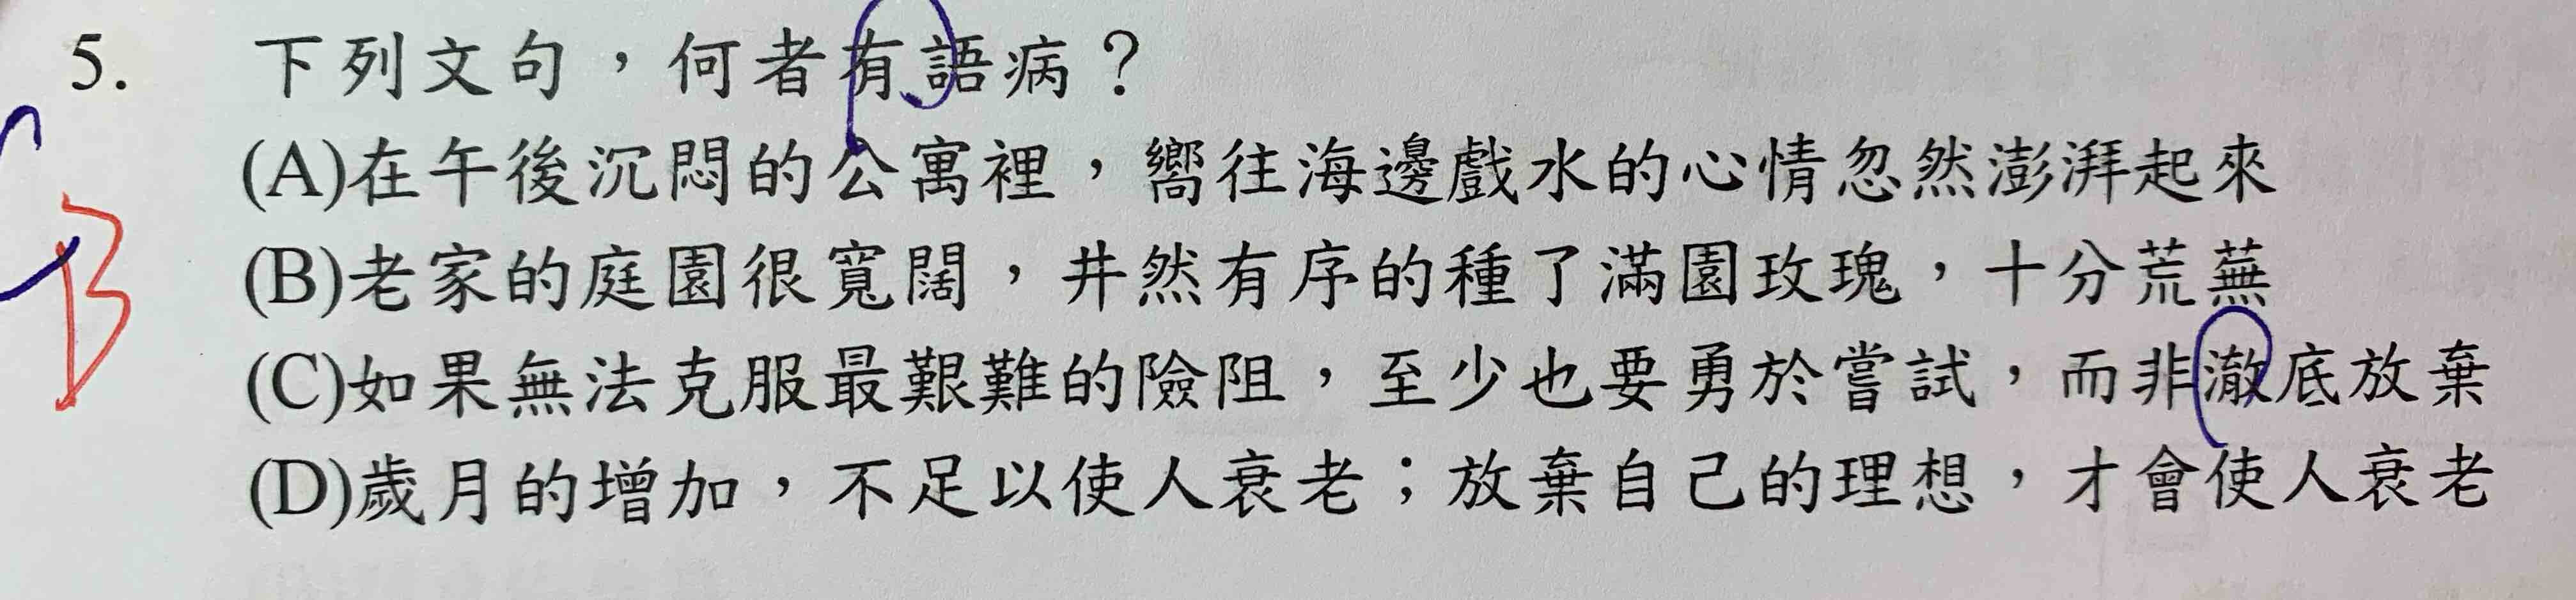 5. 下列文句，何者有語病？
(A)在午後沉悶的公寓裡，嚮往海邊戲水的心情忽然澎湃起來
(B)老家的庭園很寬闊，井然有序的種了滿園玫瑰，十分荒蕪
B
(C)如果無法克服最艱難的險阻，至少也要勇於嘗試，而非澈底放棄
(D)歲月的增加，不足以使人衰老；放棄自己的理想，才會使人衰老